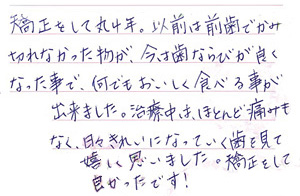 矯正をして丸4年。以前は前歯でかみ
切れなかった物が、今は歯ならびが良く
なった事で、何でもおいしく食べる事が
出来ました。治療中は、ほとんど痛みも
なく、日々きれいになっていく歯を見て
嬉しく思いました。矯正をして
良かったです!